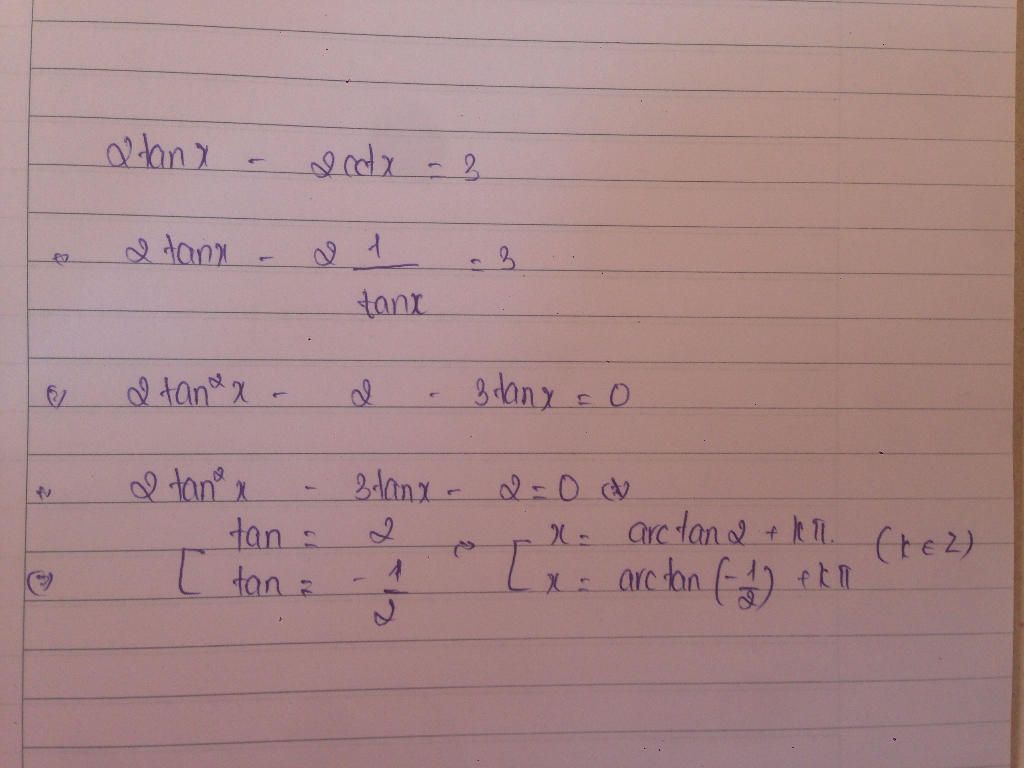 2tanx - 2cotx = 3
⇔ 2tanx - 2 1/tanx = 3
⇔ 2tan²x - 2 - 3tanx = 0
⇔ 2tan²x - 3tanx - 2 = 0 (*)
⇔ [ tan = 2 ⇔ [ x = arctan2 + kπ. (k ∈ Z)
tan = -1/2 x = arctan(-1/2) + kπ